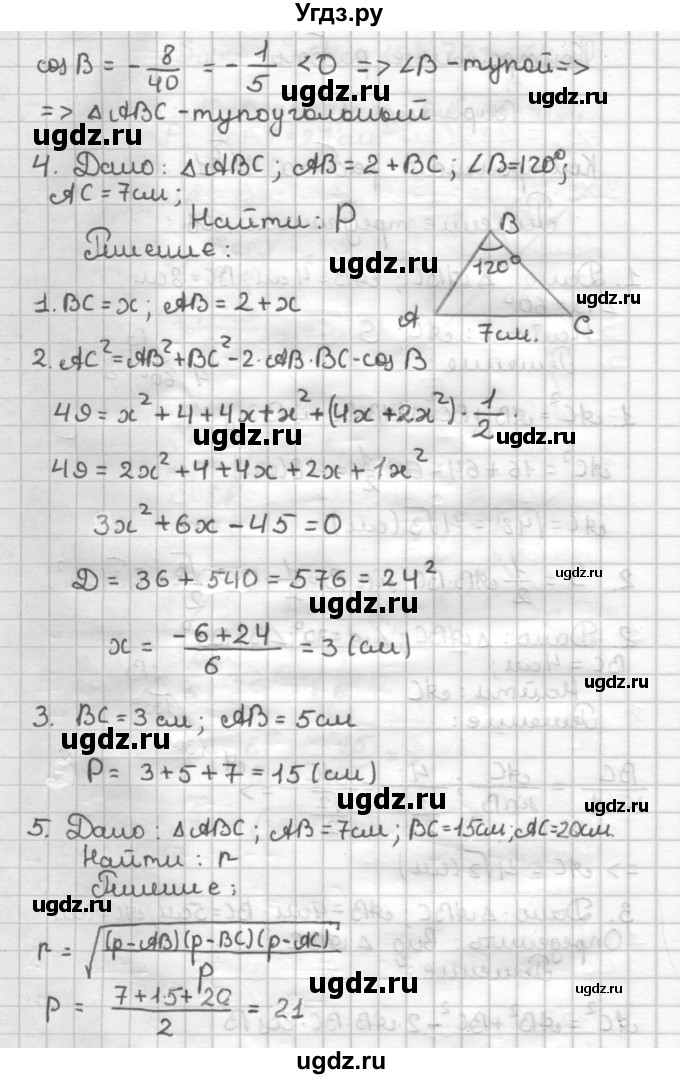 Угдз.ру
cos B = - 8/40 = - 1/5 < 0 => ∠B - тупой =>
ugdz.ru
=> △ABC - тупоугольный
ugdz.ru ugdz.ru
4. Дано: △ABC; AB = 2 + BC; ∠B=120°;
AC = 7см;
ugdz.ru
Найти: P
Решение:
B
120°
ugdz.ru
ugdz.ru
1. BC = x; AB = 2 + x
A
7см.
C
ugdz.ru
2. AC² = AB² + BC² - 2·AB·BC·cos B
49 = x² + 4 + 4x + x² + (4x + 2x²) · 1/2.
ugdz.ru ugdz.ru
49 = 2x² + 4 + 4x + 2x + 1x²
3x² + 6x - 45 = 0
D = 36 + 540 = 576 = 24²
ugdz.ru
ugdz.ru
x = (-6 + 24)/6 = 3 (см)
ugdz.ru
3. BC = 3 см; AB = 5 см
ugdz.ru
P = 3 + 5 + 7 = 15 (см)
ugdz.ru
5. Дано: △ABC; AB = 7см; BC = 15см; AC = 20см.
Найти: r
Решение:
ugdz.ru
r = √((p-AB)(p-BC)(p-AC)/p)
ugdz.ru
p = (7 + 15 + 20)/2 = 21
ugdz.ru
ugdz.ru